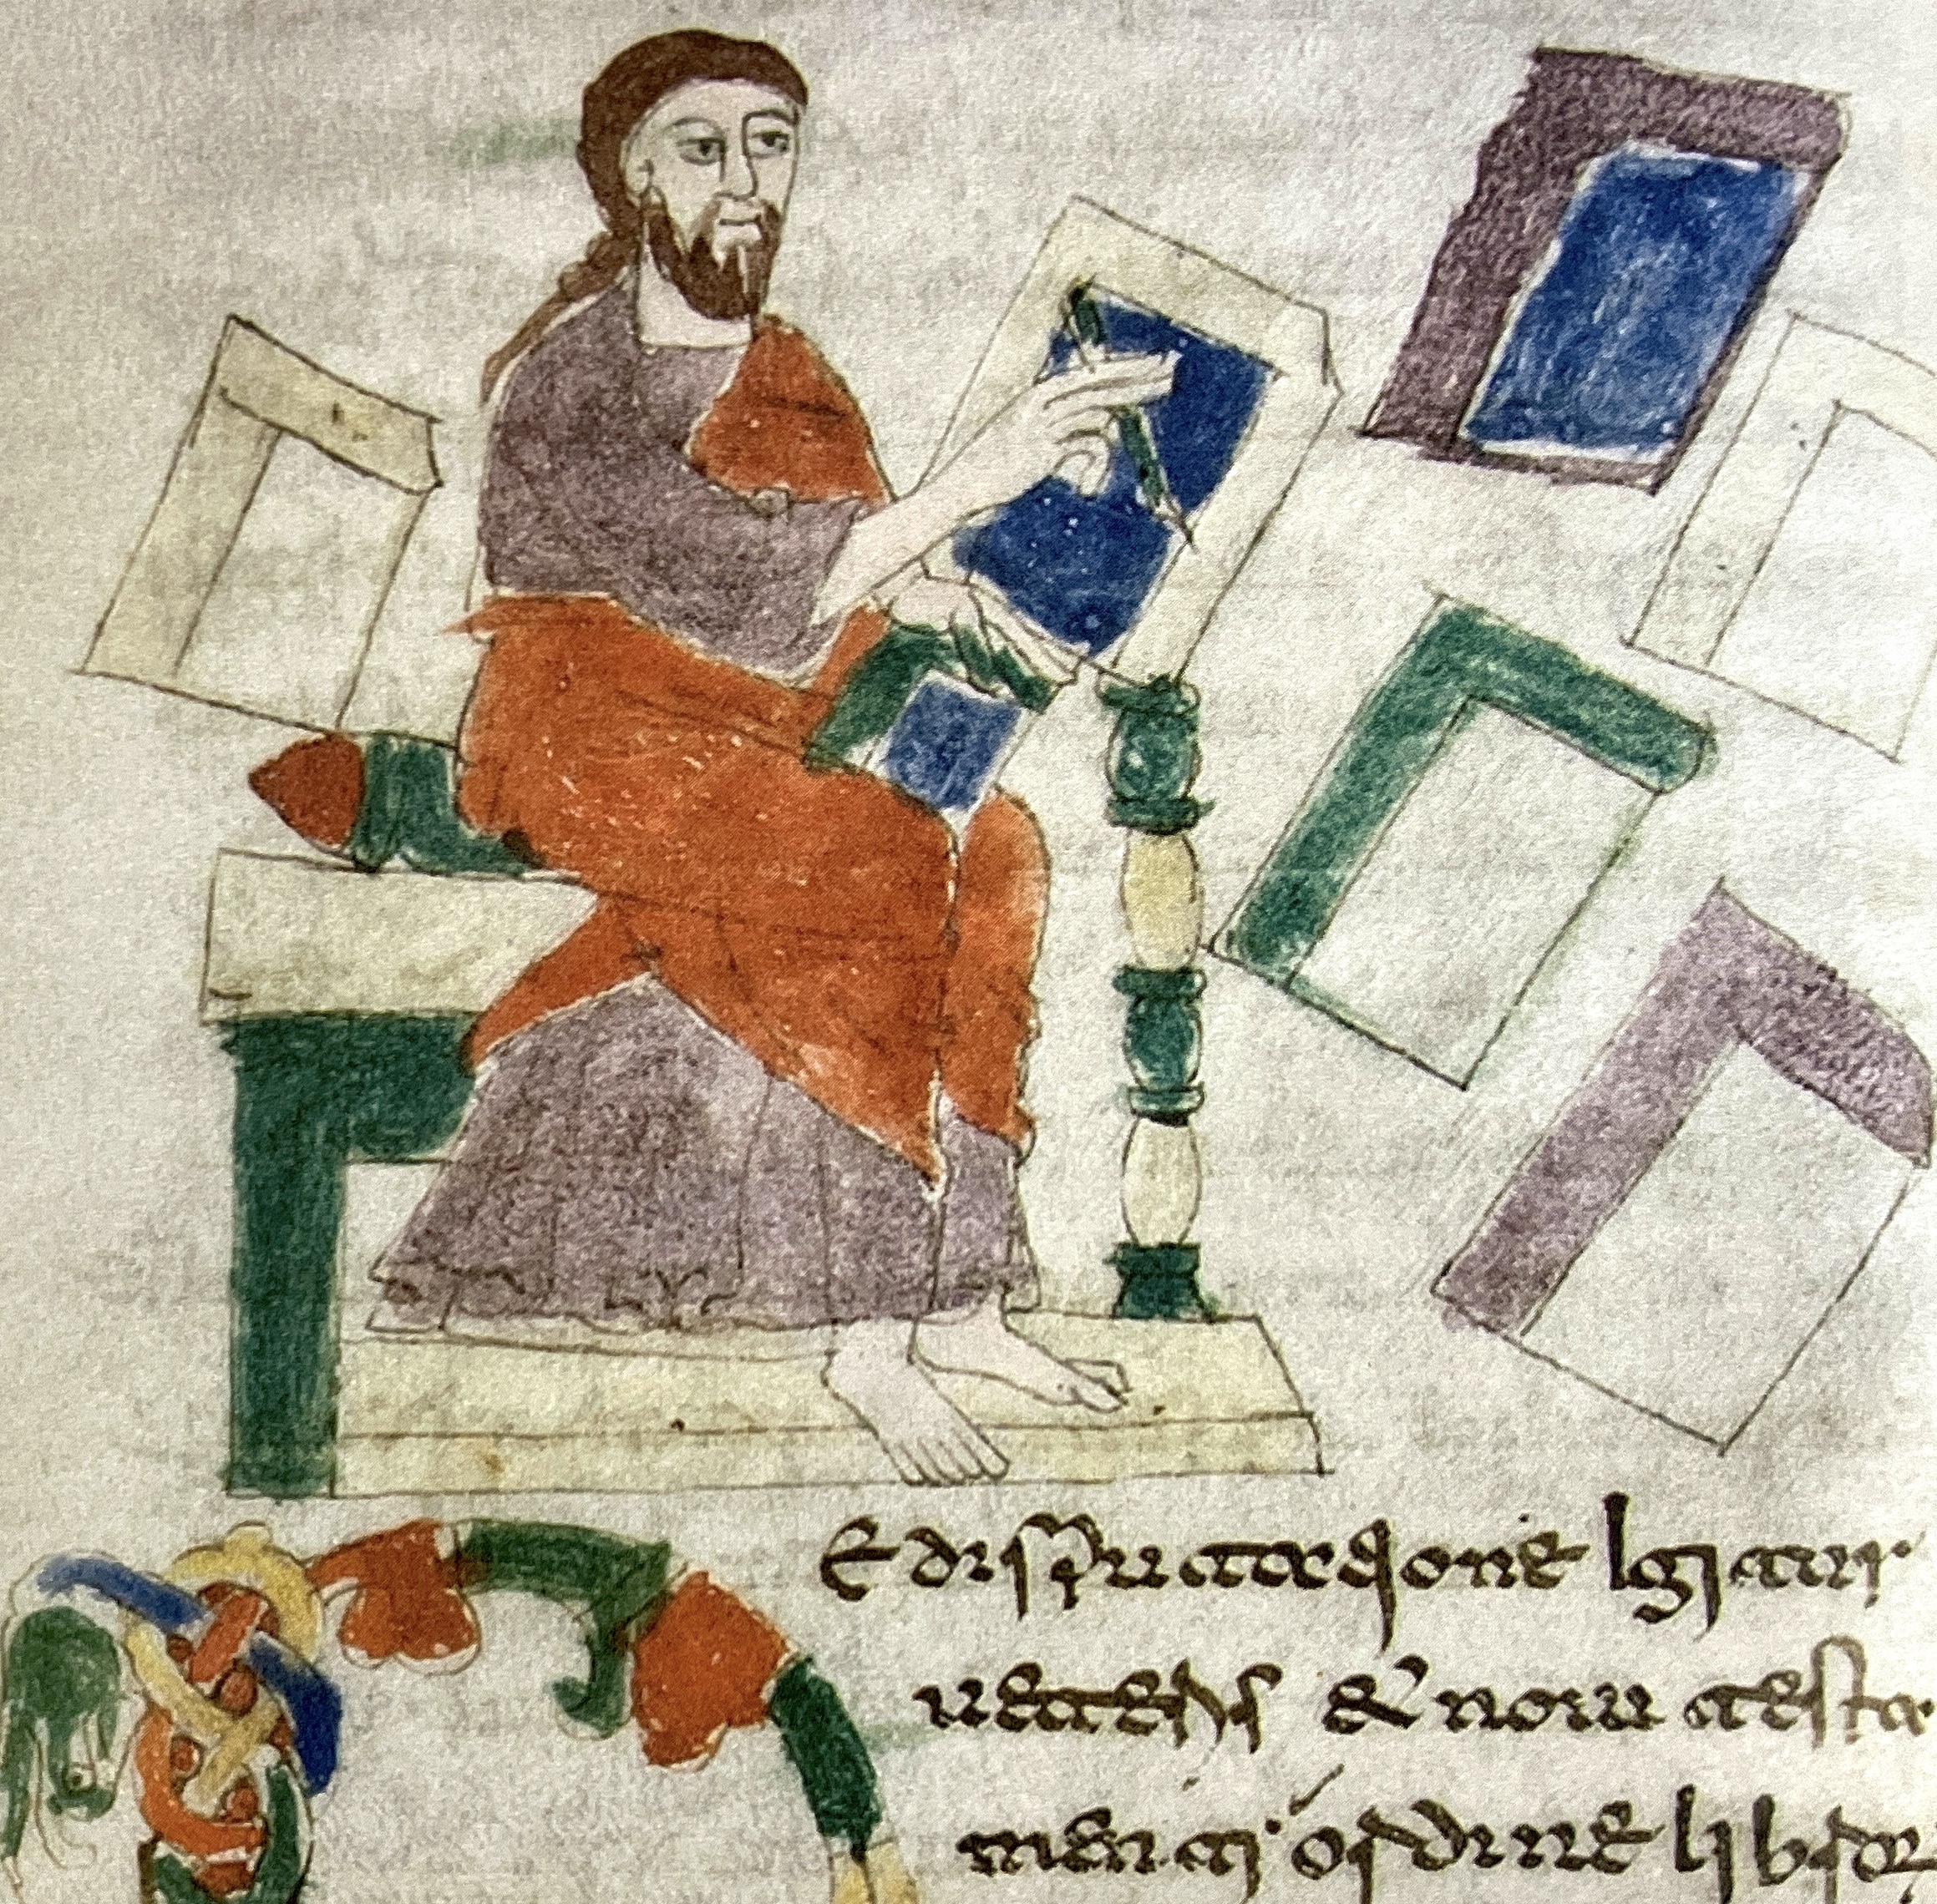 De disputatione Igitur
ueteris & noui testa
menti· ordine libror